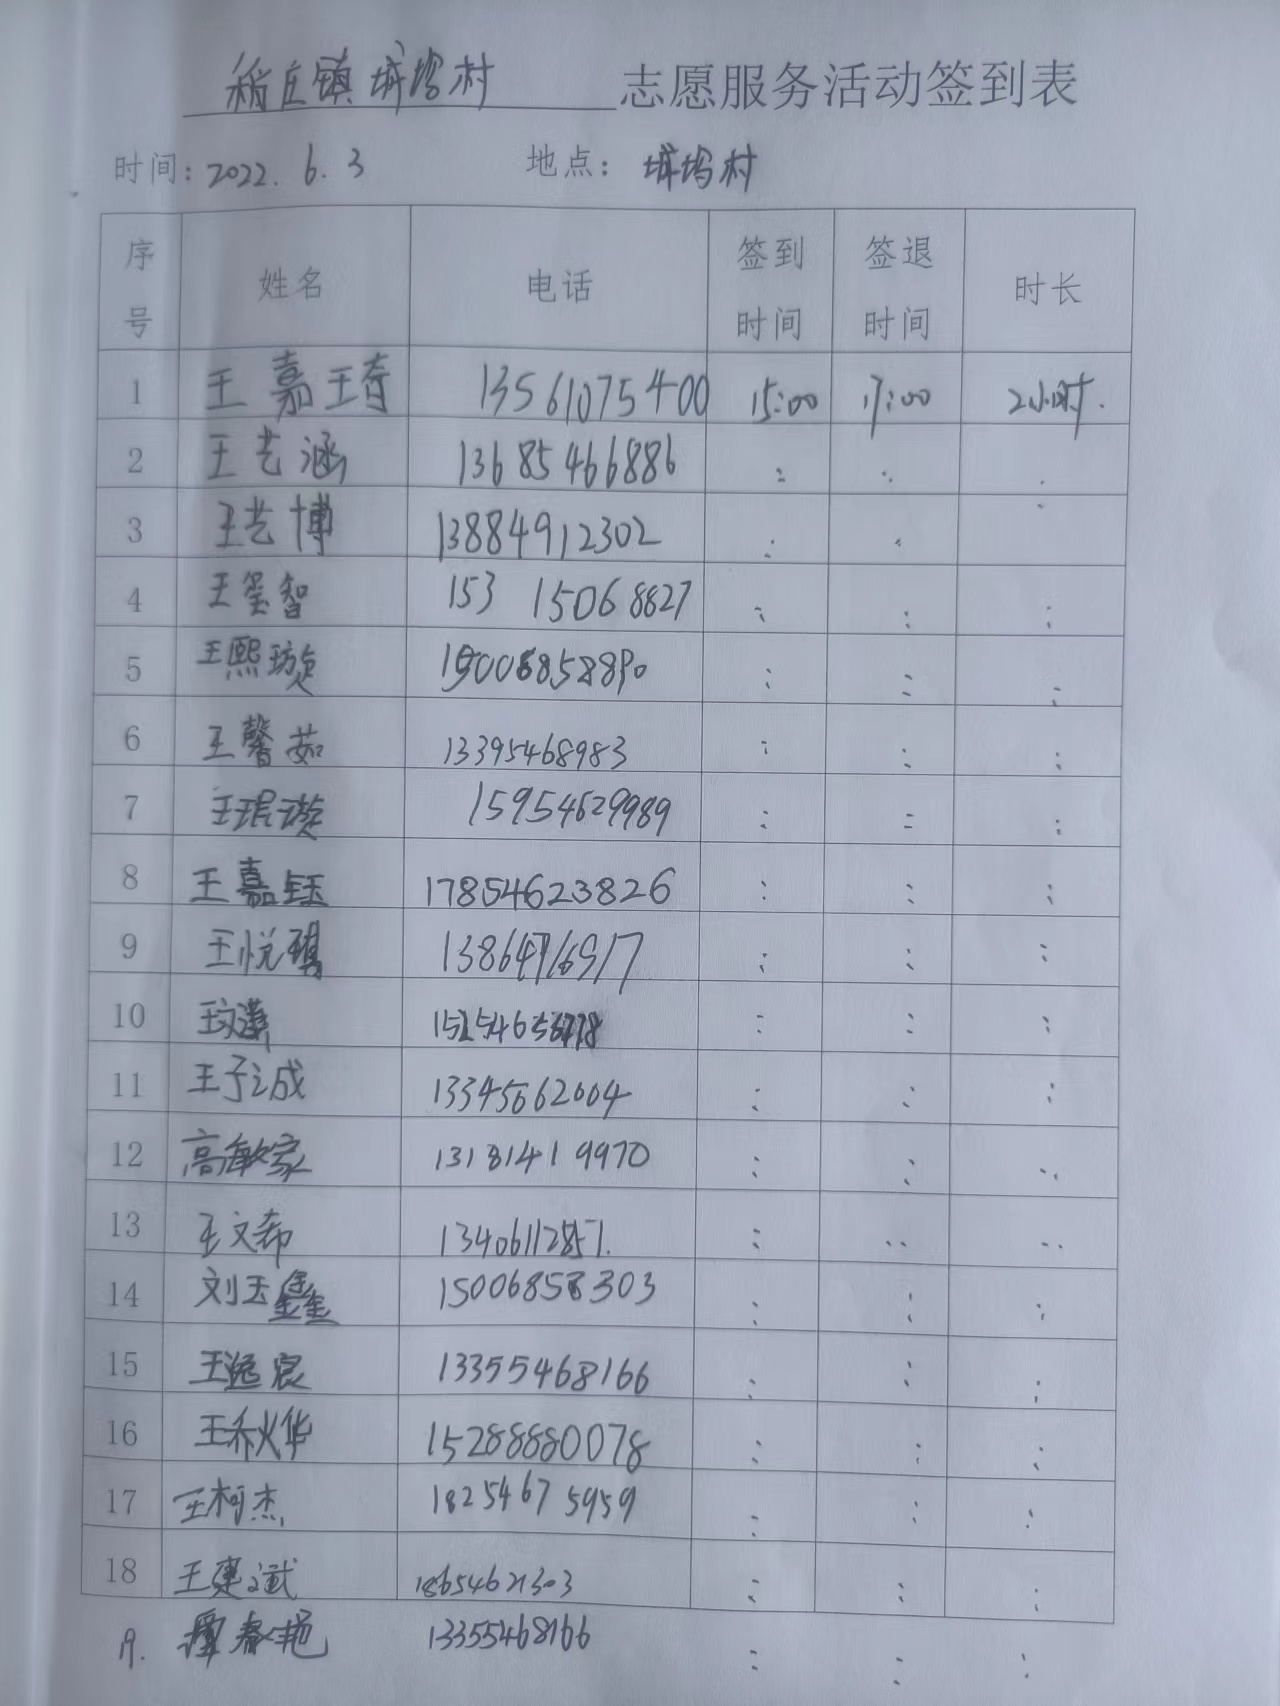 稻庄镇城坞村 志愿服务活动签到表
时间: 2022.6.3 地点: 城坞村
序号 姓名 电话 签到时间 签退时间 时长
1 王嘉琦 13561075400 15:00 17:00 2小时.
2 王艺涵 13685466886 : : .
3 王艺博 13884912302 : :
4 王玺智 15315068827 : : :
5 王熙 15006858890 : : :
6 王馨茹 13395468983 : : :
7 王琨 15954629989 : : :
8 王嘉钰 17854623826 : : :
9 王悦 13864716917 : : :
10 王文 : : :
11 王子诚 13345662004 : : :
12 高家 13181419970 : : :
13 王文希 : : :
14 刘玉鑫 15006858303 : : :
15 王逸宸 13355468166 : : :
16 王乔烨 15288880078 : : :
17 王柯杰 18254675959 : : :
18 王建斌 18654621303 : : :
19. 春艳 13355468166 : : :